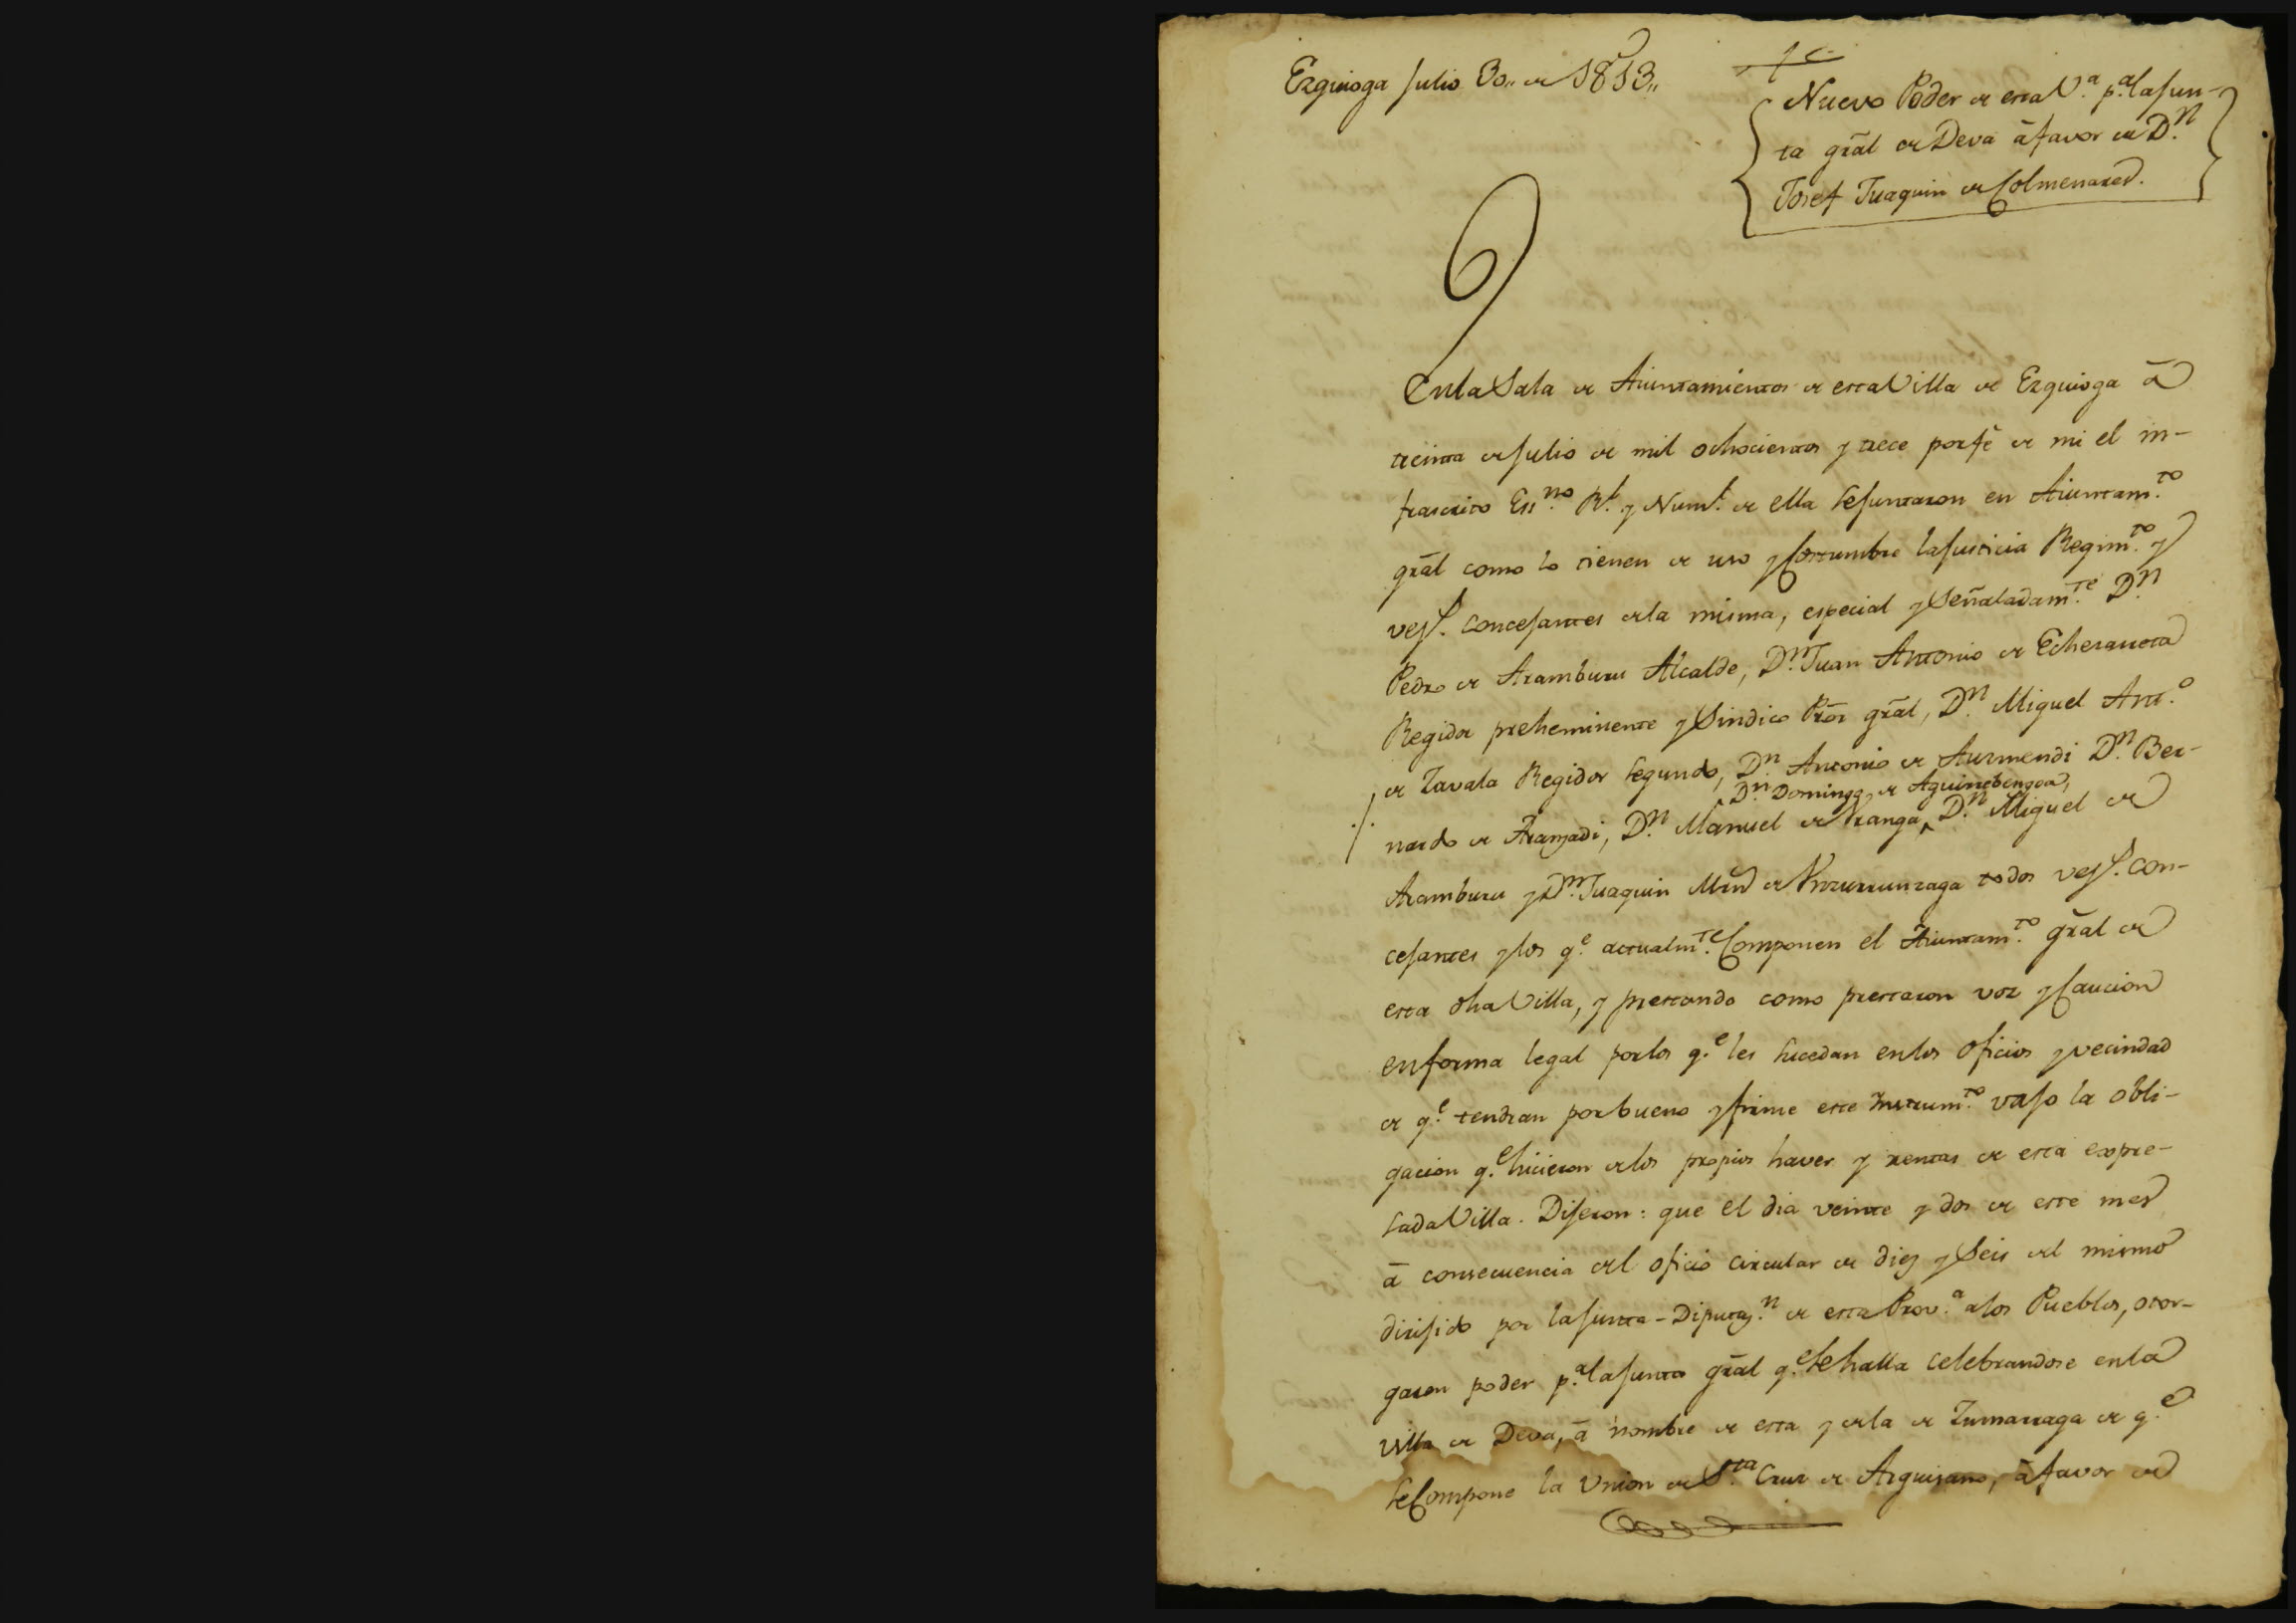 Ezquioga Julio 30,, de 1813,,
Nuevo Poder de esta V.ª p.ª la Jun-
ta gral de Deva á favor de D.n
Josef Juaquin de Colmenares.
En la Sala de Aiuntamientos de esta Villa de Ezquioga á
treinta de Julio de mil ochocientos y trece por fé de mi el in-
frascrito Ess.no R.l y Num.l de ella se juntaron en Aiuntam.to
gral como lo tienen de uso y Costumbre la Justicia Regim.to y
vez.s concejantes de la misma, especial y Señaladam.te D.n
Pedro de Aramburu Alcalde, D.n Juan Antonio de Echezarreta
Regidor preheminente y Sindico Pror gral, D.n Miguel Ant.o
de Zavala Regidor Segundo, D.n Antonio de Aurmendi D.n Ber-
D.n Domingo de Aguinebengoa,
nardo de Aranzadi, D.n Manuel de Vranga, D.n Miguel de
Aramburu y D.n Juaquin Mrn de Ynzurrunzaga todos vez.s con-
cejantes y los q.e actualm.te Componen el Aiuntam.to gral de
esta dha Villa, y prestando como prestaron voz y Caucion
en forma legal por los q.e les sucedan en los oficios y vecindad
de q.e tendran por bueno y firme este Instrum.to vajo la obli-
gacion q.e hicieron de los propios haver y rentas de esta expre-
sada Villa. Dijeron: que el dia veinte y dos de este mes
á consecuencia del oficio circular de diez y Seis del mismo
dirijido por la Junta-Diputaz.n de esta Prov.a a los Pueblos, otor-
garon poder p.ª la Junta gral q.e se halla celebrandose en la
villa de Deva, á nombre de esta y de la de Zumarraga de q.e
se Compone la Union de S.ta Cruz de Arguisano, á favor de